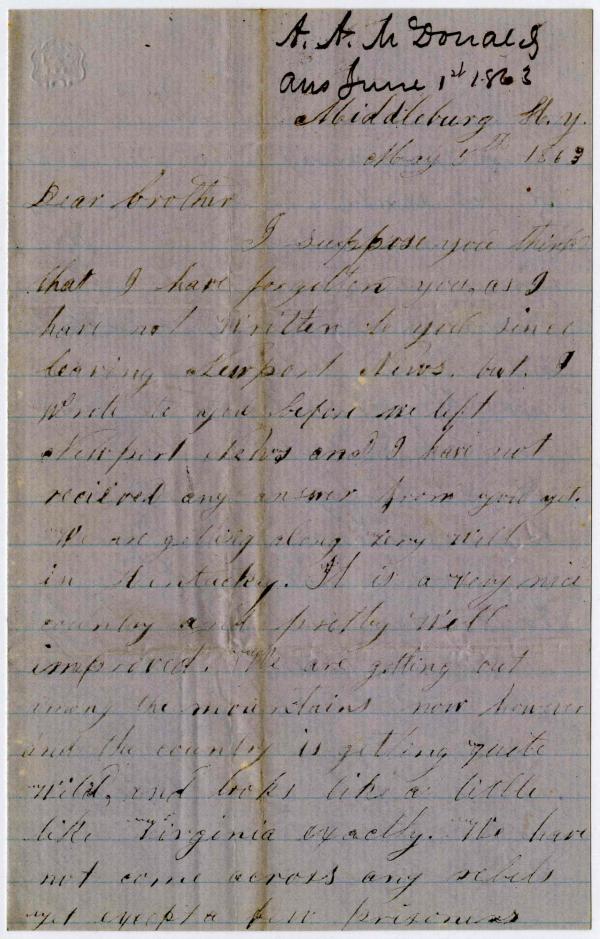 A. A. McDonald
ans June 1st 1863
Middleburg K.y.
May 1863
Dear brother
I suppose you think
that I have forgotten you, as I
have not written to you since
leaving Newport News. but I
wrote to you before we left
Newport News and I have not
recieved any answer from you yet.
We are getting along very well
in Kentucky. It is a very nice
country and pretty well
improved. We are getting out
among the mountains now however
and the country is getting quite
wild, and looks like a little
like Virginia exactly. We have
not come across any rebels
yet except a few prisoners